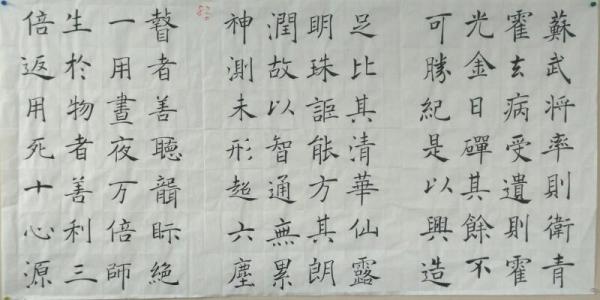 蘇武将率則衛青
霍去病受遺則霍
光金日磾其餘不
可勝紀是以興造
足比其清華仙露
明珠詎能方其朗
潤故以智通無累
神測未形超六塵
瞽者善聴聾眎絶
一用晝夜万倍師
生於物者善利三
倍返用死十心源